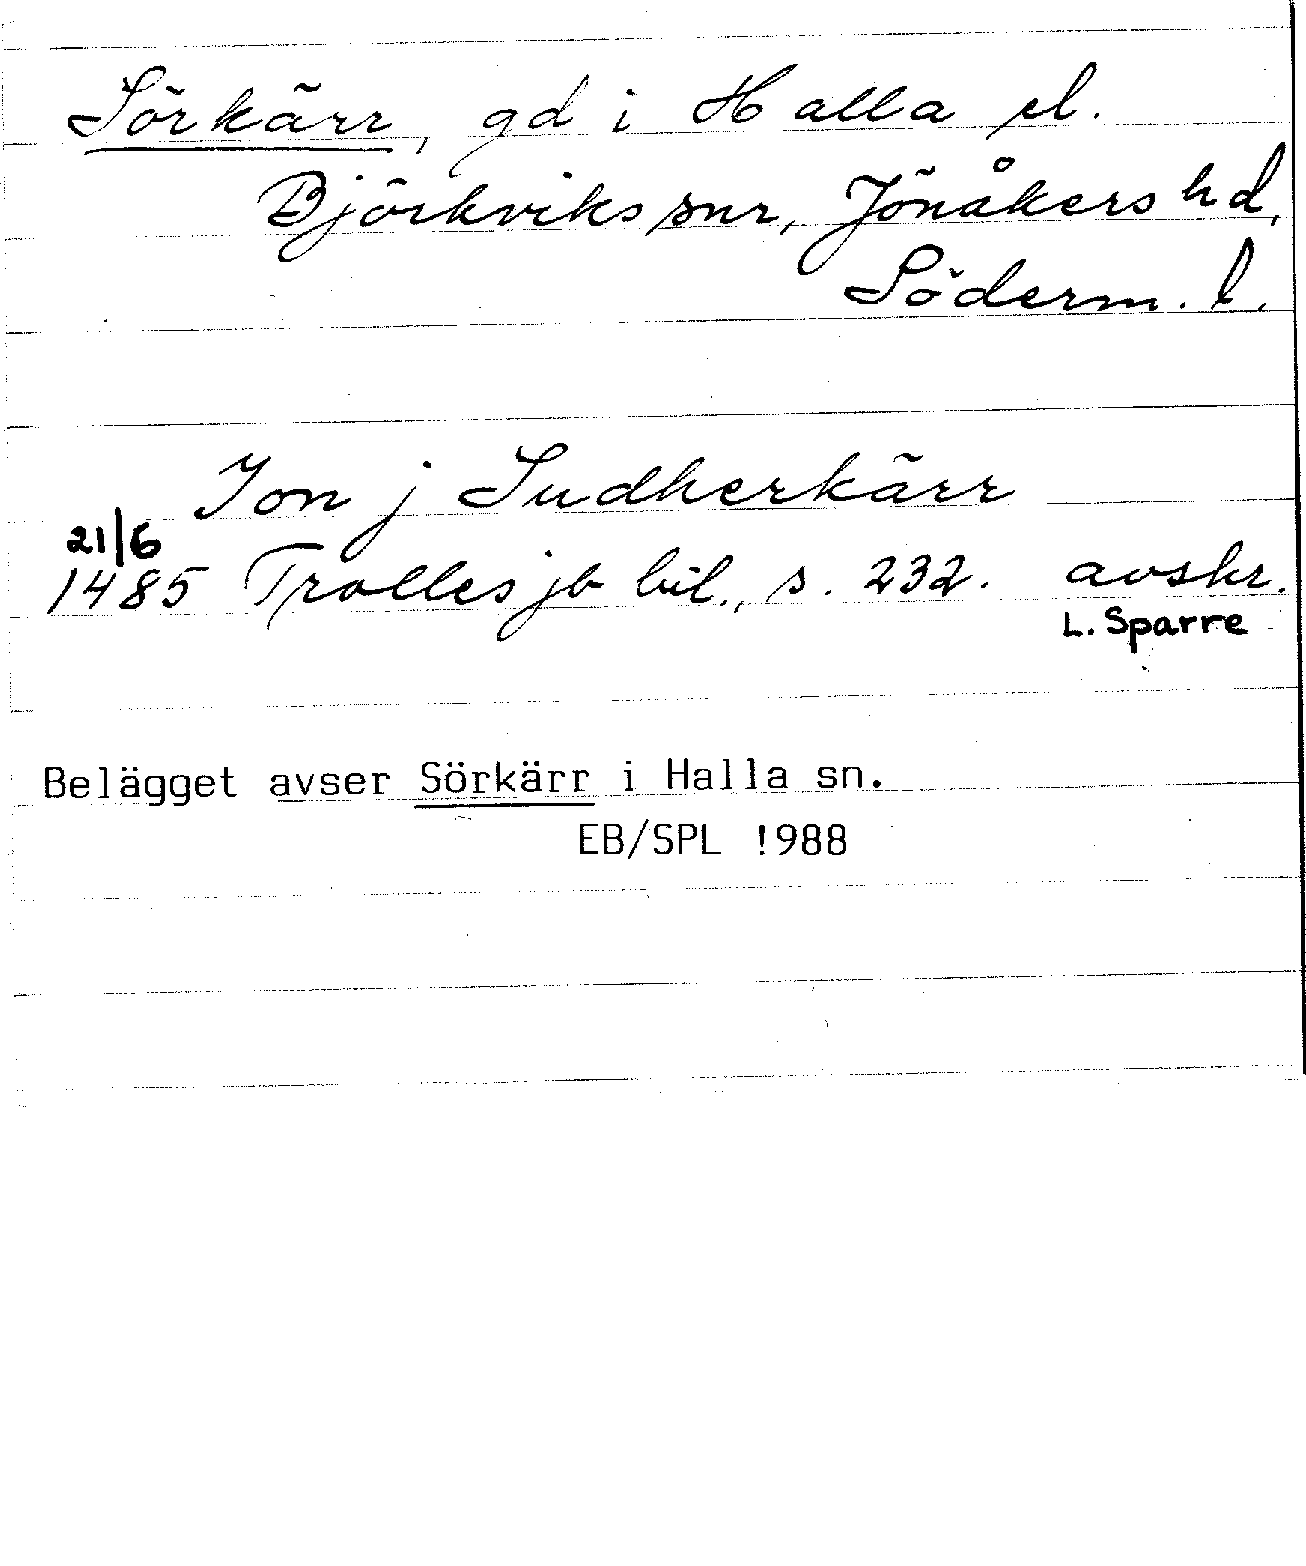 Sörkärr, gd i Halla el.
Björkviks snr, Jönåkers hd,
Söderm. l.
Jon j Sudherkärr
21/6
1485 Trolles jb bil., s. 232. avskr.
L. Sparre
Belägget avser Sörkärr i Halla sn.
EB/SPL !988